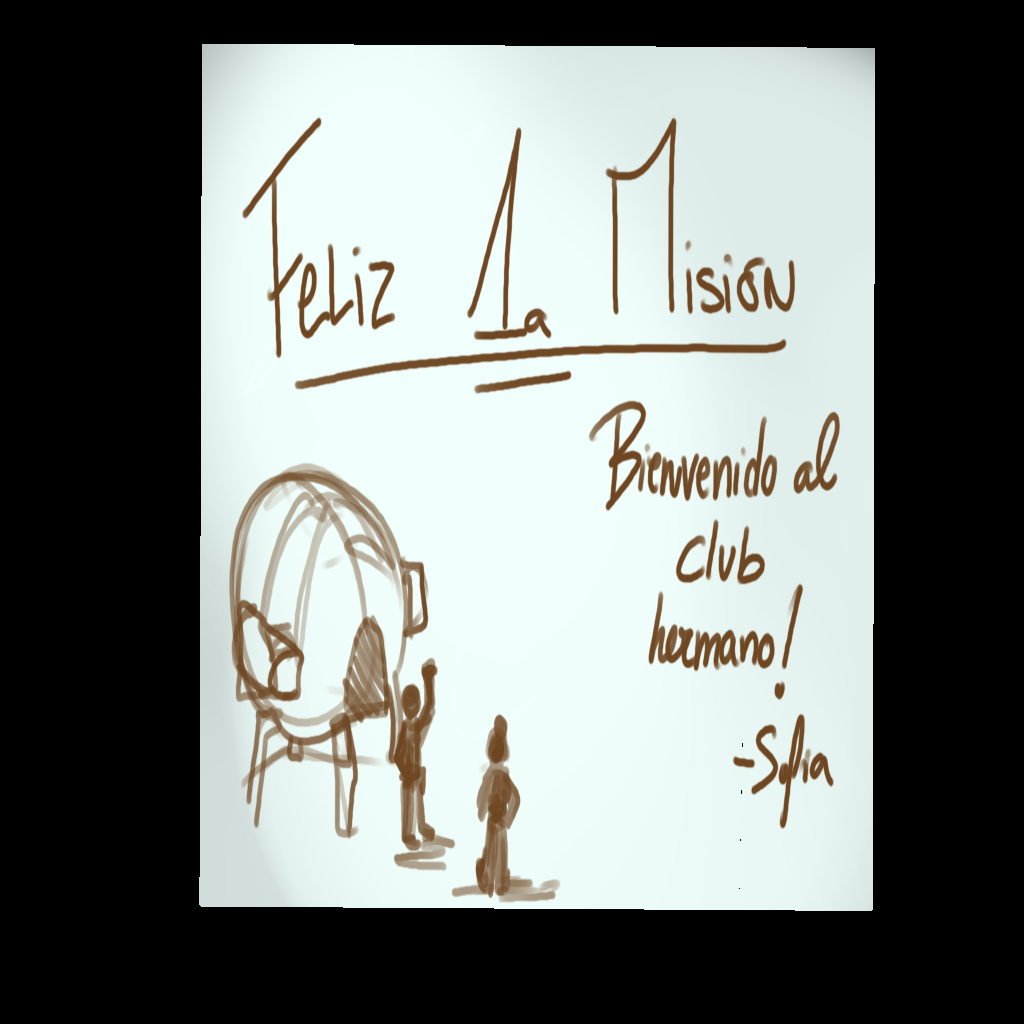 Feliz 1a Misión
Bienvenido al
club
hermano!
-Sofia